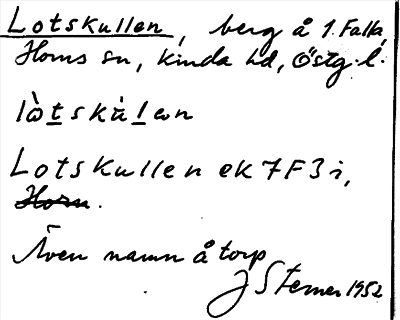 Lotskullen, berg å 1. Falla,
Horns sn, Kinda hd, Östg. l.
lὼtskὰlən
Lotskullen ek 7F3i,
Horn.
Även namn å torp
J Sterner 1952